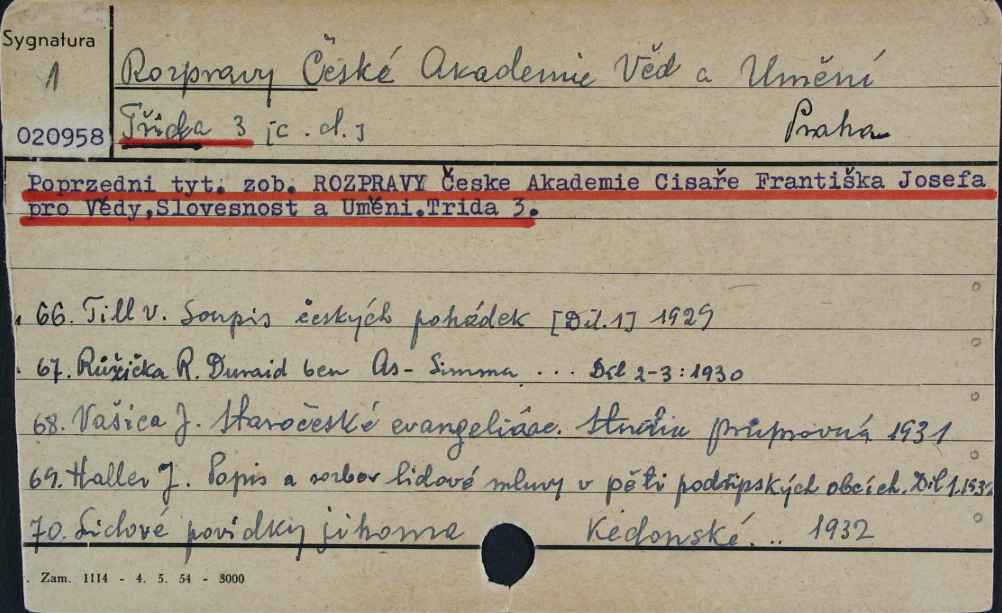 Sygnatura
1
020958
Rozpravy České Akademie Věd a Umění
Třída 3 [c. d.] Praha
Poprzedni tyt. zob. ROZPRAVY Česke Akademie Cisaře Františka Josefa
pro Vědy,Slovesnost a Uměni.Trida 3.
66. Till V. Soupis českých pohádek [Díl.1] 1929
67. Růžička R. Duraid ben As-Simma ... Díl 2-3: 1930
68. Vašica J. Staročeské evangeliáře. Studie průpravná 1931
69. Haller J. Popis a rozbor lidové mluvy v pěti podřipských obcích. Díl 1. 1932
70. Lidové povídky jihoma kedonské... 1932
. Zam. 1114 - 4. 5. 54 - 3000